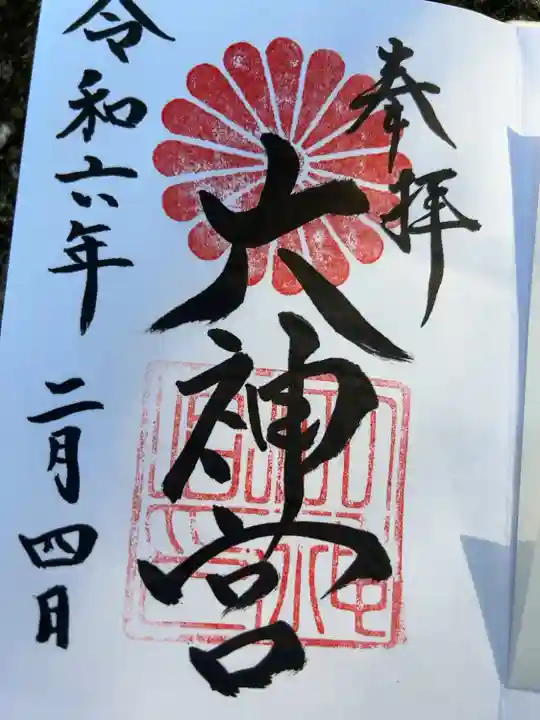 奉拝
大神宮
令和六年 二月四日